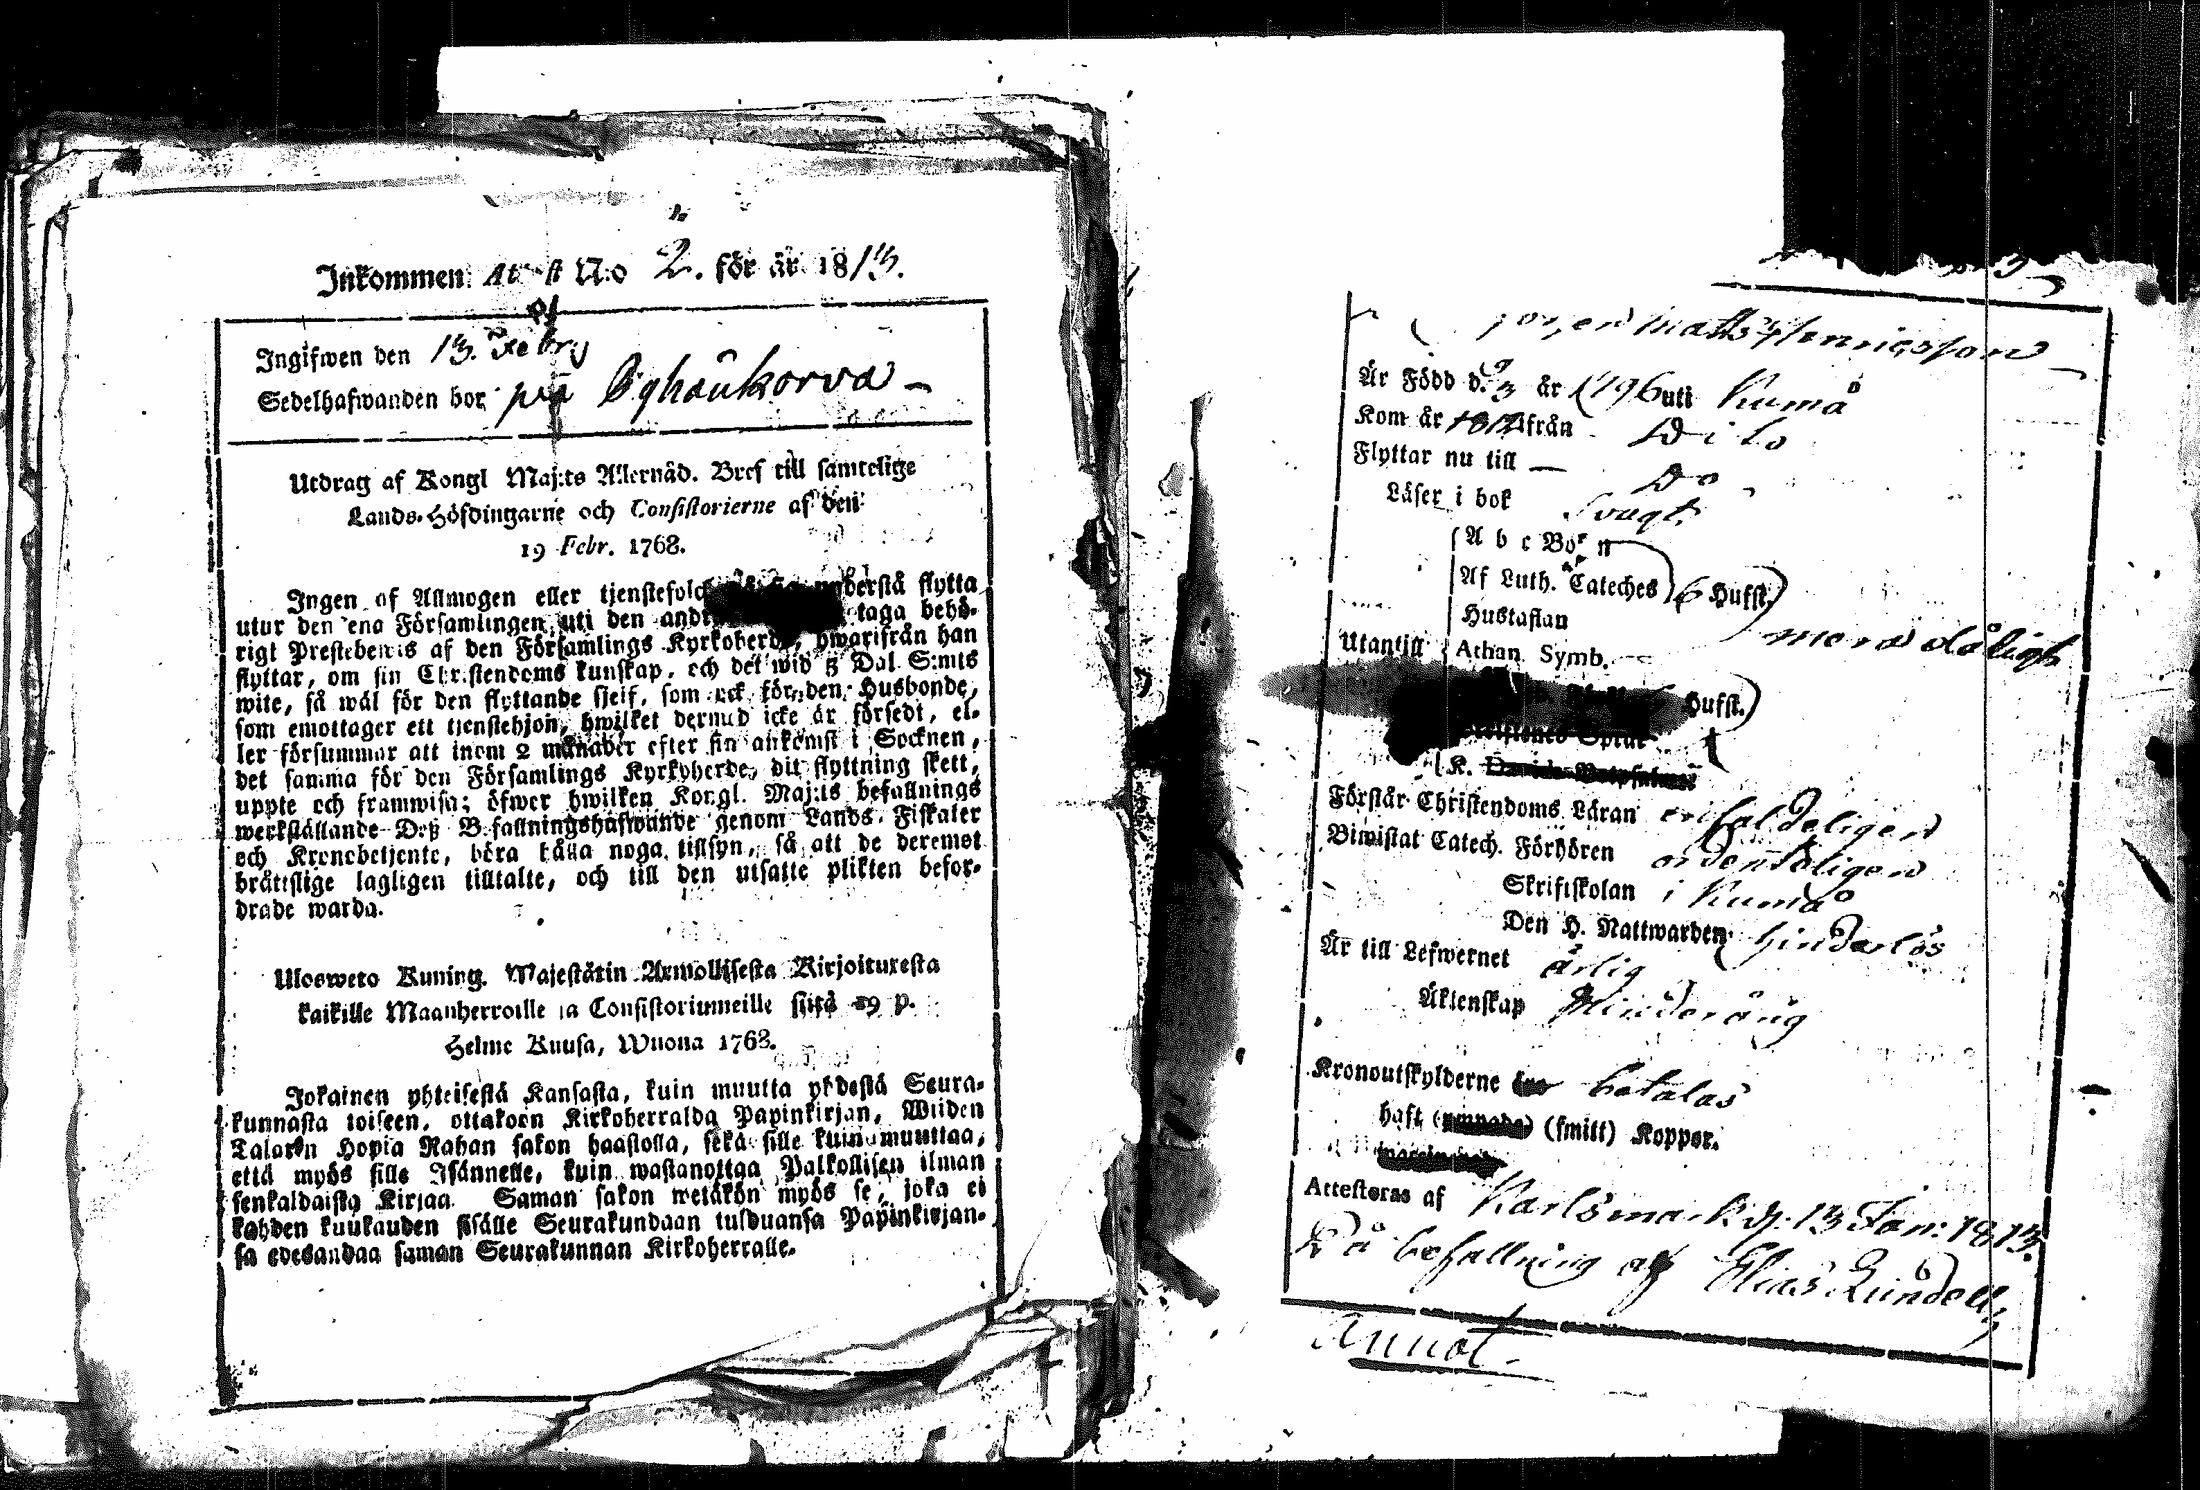 Inkommen Attest No 2. för år 1813.
Ingifwen den 13. Febry
Sedelhafwanden bor på
Utdrag af Kongl Maj:ts Allernåd. Bref till samtelige
Lands-Höfdingarne och Consistorierne af den
19 Febr. 1768.
Ingen af Allmogen eller tjenstefolck understå flytta
utur den ena Församlingen uti den andra taga behö-
rigt Prestebewis af den Församlings Kyrkoherde, hwarifrån han
flyttar, om sin Christendoms kunskap, och det wid 5 Dal. S:mts
wite, så wäl för den flyttande sjelf, som ock för den Husbonde,
som emottager ett tjenstehjon, hwilket dermed icke är försedt, el-
ler försummar att inom 2 månader efter sin ankomst i Socknen,
det samma för den Församlings Kyrkoherde, dit flyttning skett,
uppte och framwisa; öfwer hwilken Kongl. Maj:ts befallnings
werkställande Deß Befallningshafwande genom Lands-Fiskaler
och Kronobetjente, böra hålla noga tillsyn, så att de deremot
bråttslige lagligen tilltalte, och till den utsatte plikten befor-
drade warda.
Ulosweto Kuning. Majestätin Armollisesta Kirjoituxesta
kaikille Maanherroille ja Consistoriumeille siitä 19 p.
Helme Kuusa, Wuona 1768.
Jokainen yhteisestä Kansasta, kuin muutta yhdestä Seura-
kunnasta toiseen, ottakoon Kirkoherralda Papinkirjan, Wiiden
Talarin Hopia Rahan sakon haastolla, sekä sille kuin muuttaa,
että myös sille Isännelle, kuin wastanottaa Palkollisen ilman
senkaldaista Kirjaa. Saman sakon wetäkön myös se, joka ei
kahden kuukauden sisälle Seurakundaan tulduansa Papinkirjan-
sa edesandaa saman Seurakunnan Kirkoherralle.
Matts Henricsson
Är Född d. 3 år 1796 uti Kumå
Kom år 1812 från Dito
Flyttar nu till — Do
Läser i bok Svagt
A b c Boken
Af Luth. Cateches 6 Hufst.)
Hustaflan
Utantill Athan Symb. mera dåligt
Hufst.)
K. Davids Botpsalmer
Förstår Christendoms Läran enfaldeligen
Biwistat Catech. Förhören ordenteligen
Skriftskolan i Kumå
Den H. Nattwarden hinderlös
Är till Lefwernet ärlig
Äktenskap Minderårig
Kronoutskylderne betalas
haft (smitt) Koppor.
Attesteras af Karlsmark d. 13 Jan: 1813.
På befallning af Elias Lundell
Annot.